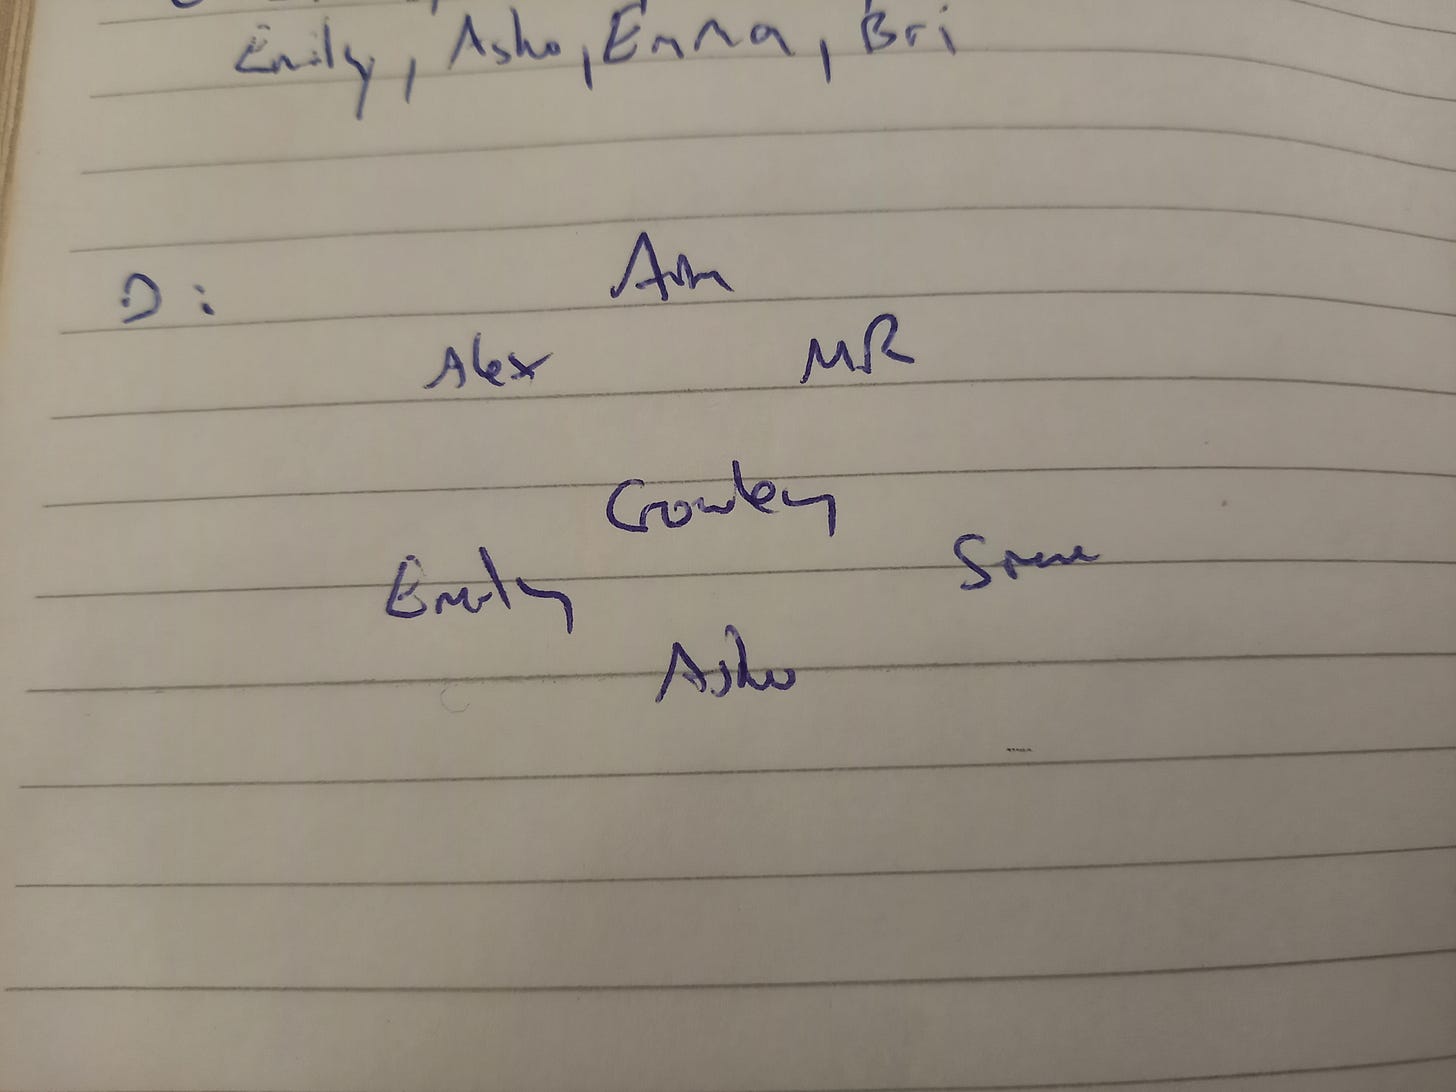 Emily, Asho, Emma, Bri
D:
Alex MR
Crowley
Emily
Asho